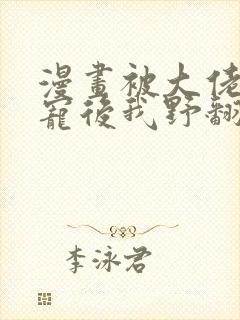 漫畫被大佬
寵後我野翻
李泳君